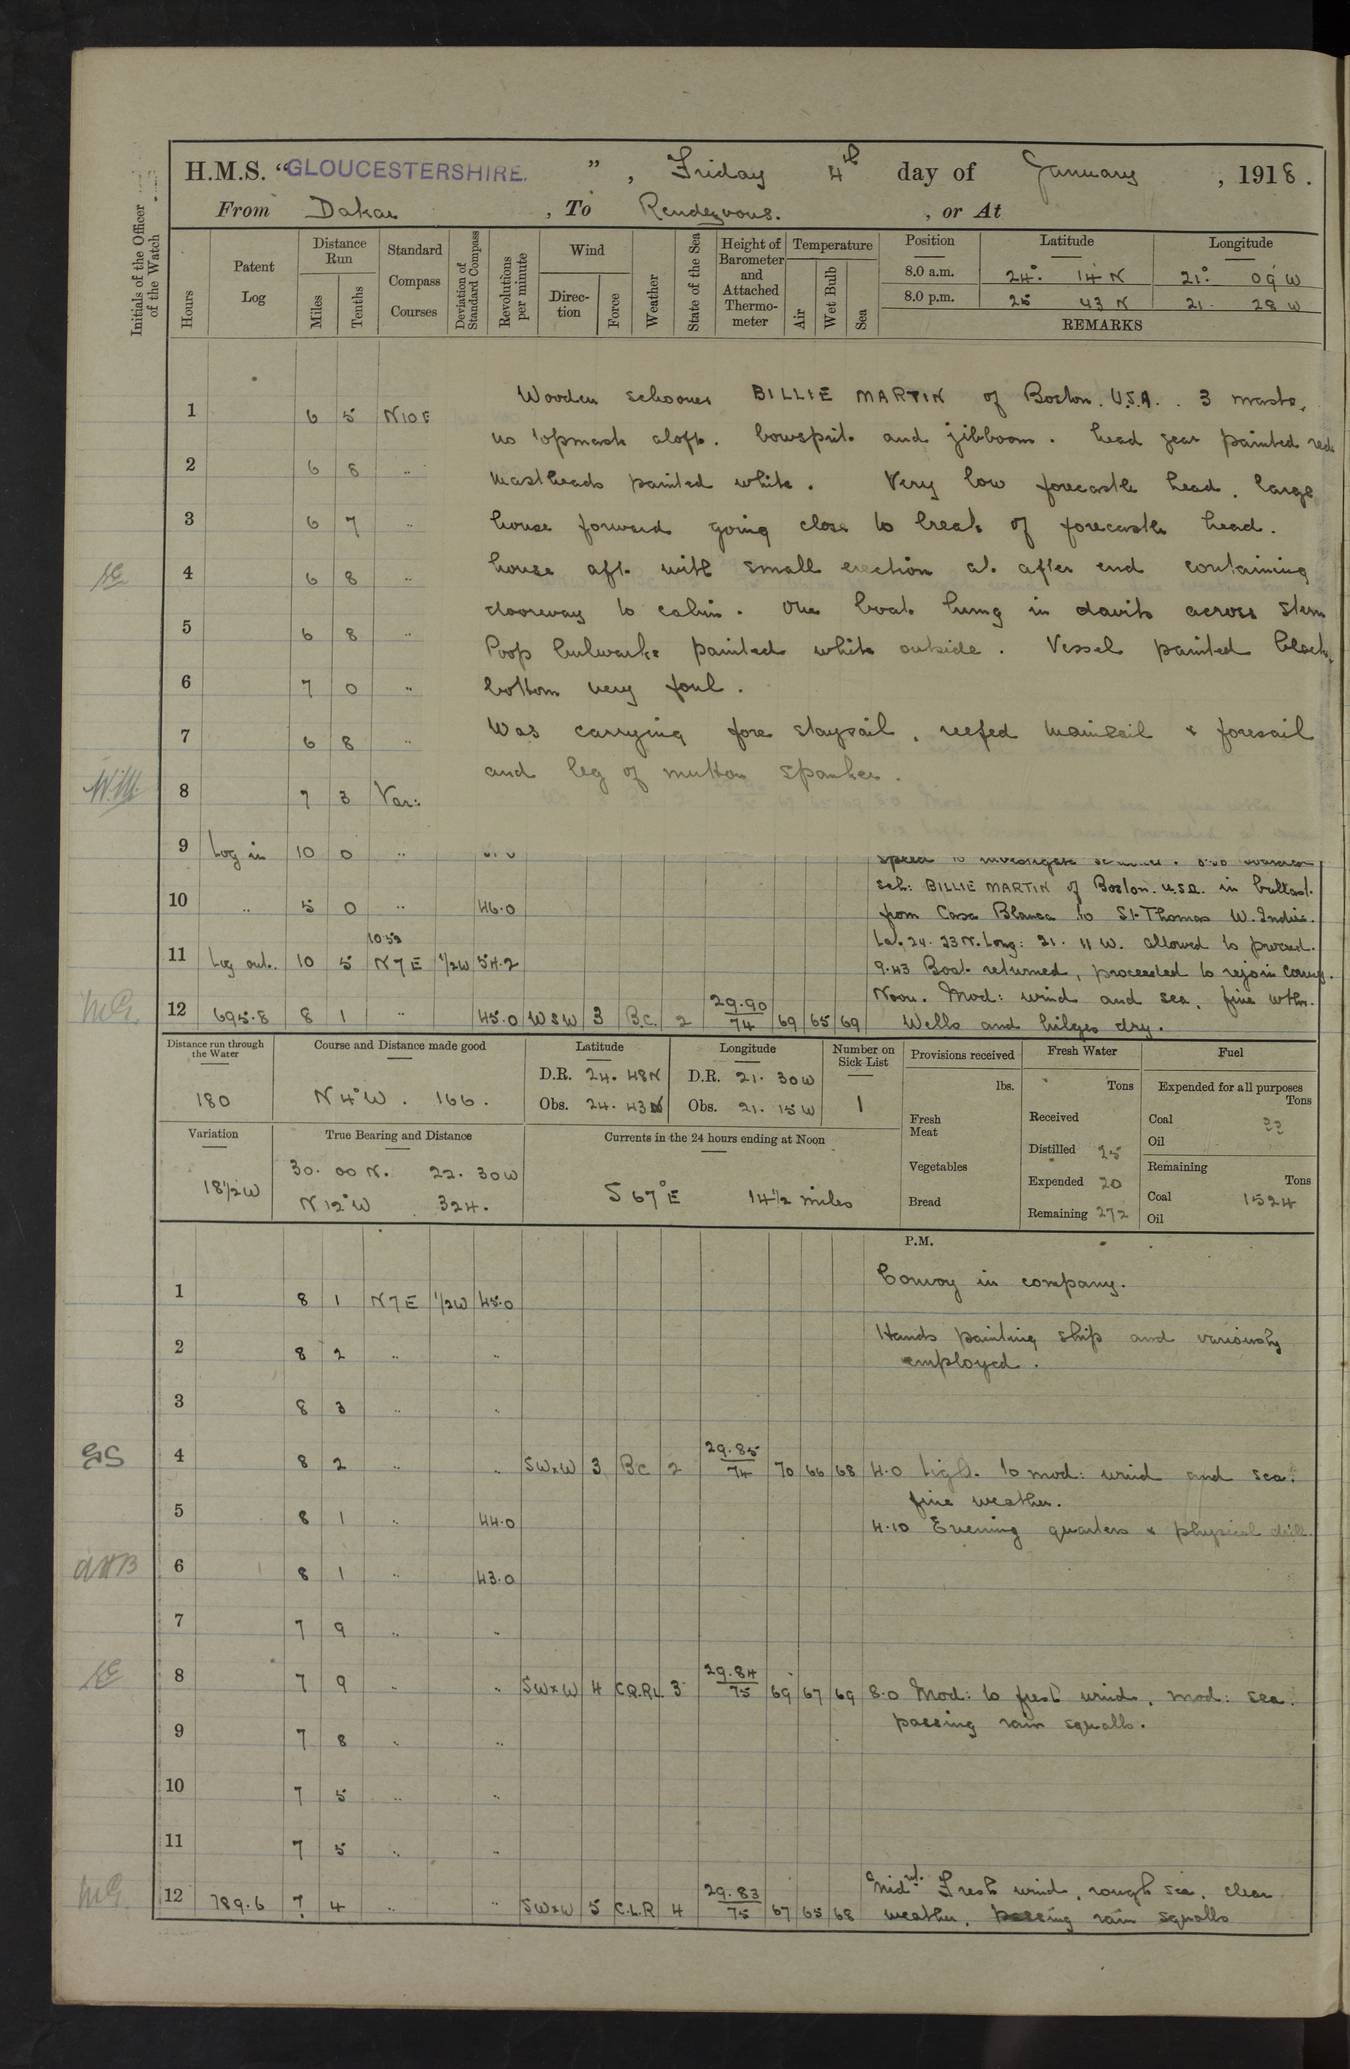 H.M.S. "GLOUCESTERSHIRE.", Friday 4th day of January, 1918.
From Dakar, To Rendezvous., or At
Initials of the Officer of the Watch
Hours
Patent Log
Distance Run
Miles
Tenths
Standard Compass Courses
Deviation of Standard Compass
Revolutions per minute
Wind
Direc-tion
Force
Weather
State of the Sea
Height of Barometer and Attached Thermo-meter
Temperature
Air
Wet Bulb
Sea
Position Latitude Longitude
8.0 a.m. 24° 14 N 21° 09 W
8.0 p.m. 25 43 N 21. 28 W
REMARKS
Wooden schooner BILLIE MARTIN of Boston. U.S.A. . 3 masts.
no topmasts aloft. bowsprit and jibboom. head gear painted red
mastheads painted white. Very low forecastle head. large
house forward going close to break of forecastle head.
house aft with small erection at after end containing
doorway to cabin. One boat hung in davits across stern
Poop bulwarks painted white outside. Vessel painted black,
bottom very foul.
Was carrying fore staysail, reefed mainsail & foresail
and leg of mutton spanker.
1 6 5 N10E
2 6 8 "
3 6 7 "
4 6 8 "
5 6 8 "
6 7 0 "
7 6 8 "
8 7 3 Var:
9 Log in 10 0 "
speed to investigate
10 " 5 0 " 46.0
sch: BILLIE MARTIN of Boston. U.S.A. in ballast.
from Casa Blanca to St Thomas W. Indies.
Lat. 24. 23 N. Long: 21. 11 W. allowed to proceed.
10.52
11 Log out. 10 5 N7E 1/2W 54.2
9.43 Boat returned, proceeded to rejoin convoy.
12 695.8 8 1 " 45.0 WSW 3 B.C. 2 29.90/74 69 65 69
Noon. Mod: wind and sea, fine wthr.
Wells and bilges dry.
Distance run through the Water
180
Course and Distance made good
N 4°W. 166.
Latitude
D.R. 24. 48N
Obs. 24. 43N
Longitude
D.R. 21. 30W
Obs. 21. 15W
Number on Sick List
1
Provisions received
lbs.
Fresh Meat
Vegetables
Bread
Fresh Water
Tons
Received
Distilled 25
Expended 20
Remaining 272
Fuel
Expended for all purposes
Tons
Coal
Oil
Remaining
Tons
Coal 1524
Oil
Variation
18 1/2 W
True Bearing and Distance
30. 00 N. 22. 30W
N 12°W 324.
Currents in the 24 hours ending at Noon
S 67°E 14 1/2 miles
P.M.
Convoy in company.
1 8 1 N7E 1/2W 45.0
Hands painting ship and variously
employed.
2 8 2 " "
3 8 3 " "
4 8 2 " " SWxW 3 BC 2 29.85/74 70 66 68
4.0 Light to mod: wind and sea.
fine weather.
4.10 Evening quarters & physical drill.
5 8 1 " 44.0
6 8 1 " 43.0
7 7 9 " "
8 7 9 " " SWxW 4 C.Q.R. 3 29.84/75 69 67 69
8.0 Mod: to fresh wind, mod: sea.
passing rain squalls.
9 7 8 " "
10 7 5 " "
11 7 5 " "
12 789.6 7 4 " " SWxW 5 C.L.R 4 29.83/75 67 65 68
Midnt. Fresh wind, rough sea, clear
weather, passing rain squalls